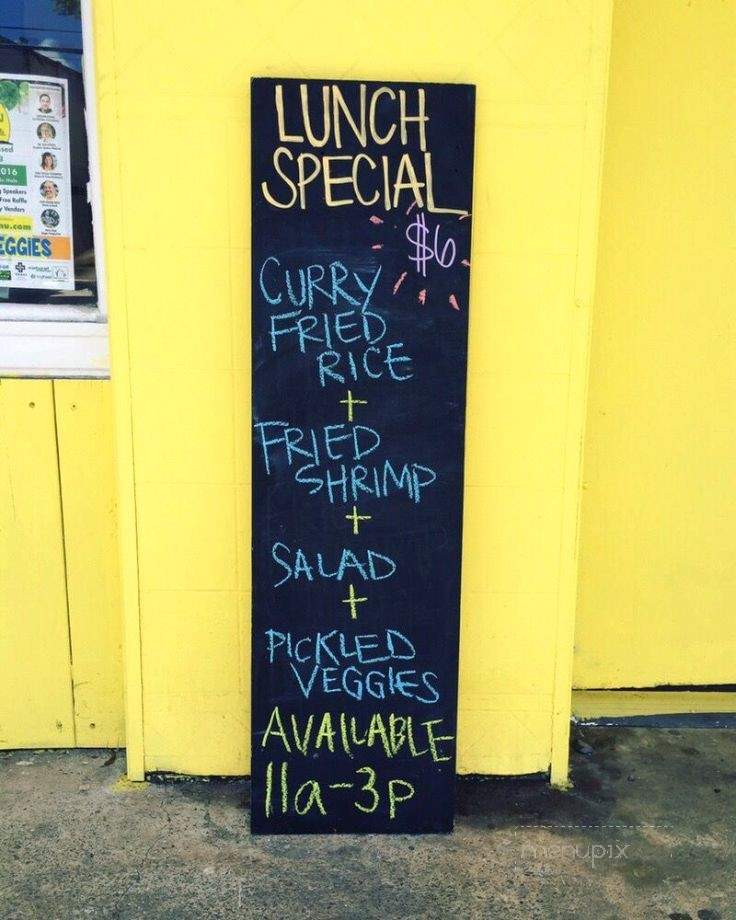 LUNCH
SPECIAL
$6
CURRY
FRIED
RICE
+
FRIED
SHRIMP
+
SALAD
+
PICKLED
VEGGIES
AVAILABLE
11a-3p
2016
Speakers
Free Raffle
Vendors
nu.com
EGGIES
menupix